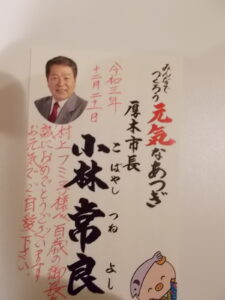 みんなで
つくろう
元気なあつぎ
厚木市長
小林常良
こばやし つね よし
令和三年
十二月二十一日
村上フミ子様 百歳の御長寿
誠におめでとうございます
お元気でご自愛下さい